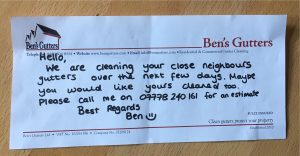 Ben's Gutters
Ben's Gutters
Residential & Commercial Gutter Cleaning
Hello,
We are cleaning your close neighbours
gutters over the next few days. Maybe
you would like yours cleaned too.
Please call me on 07778 240 161 for an estimate
Best Regards
Ben
FULLY INSURED
Clean gutters protect your property